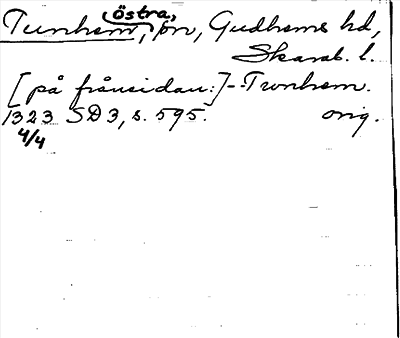 Tunhem, östra, sn, Gudhems hd,
Skarab. l.
[på frånsidan:] -- Tronhem.
1323 SD 3, s. 595. orig.
4/4